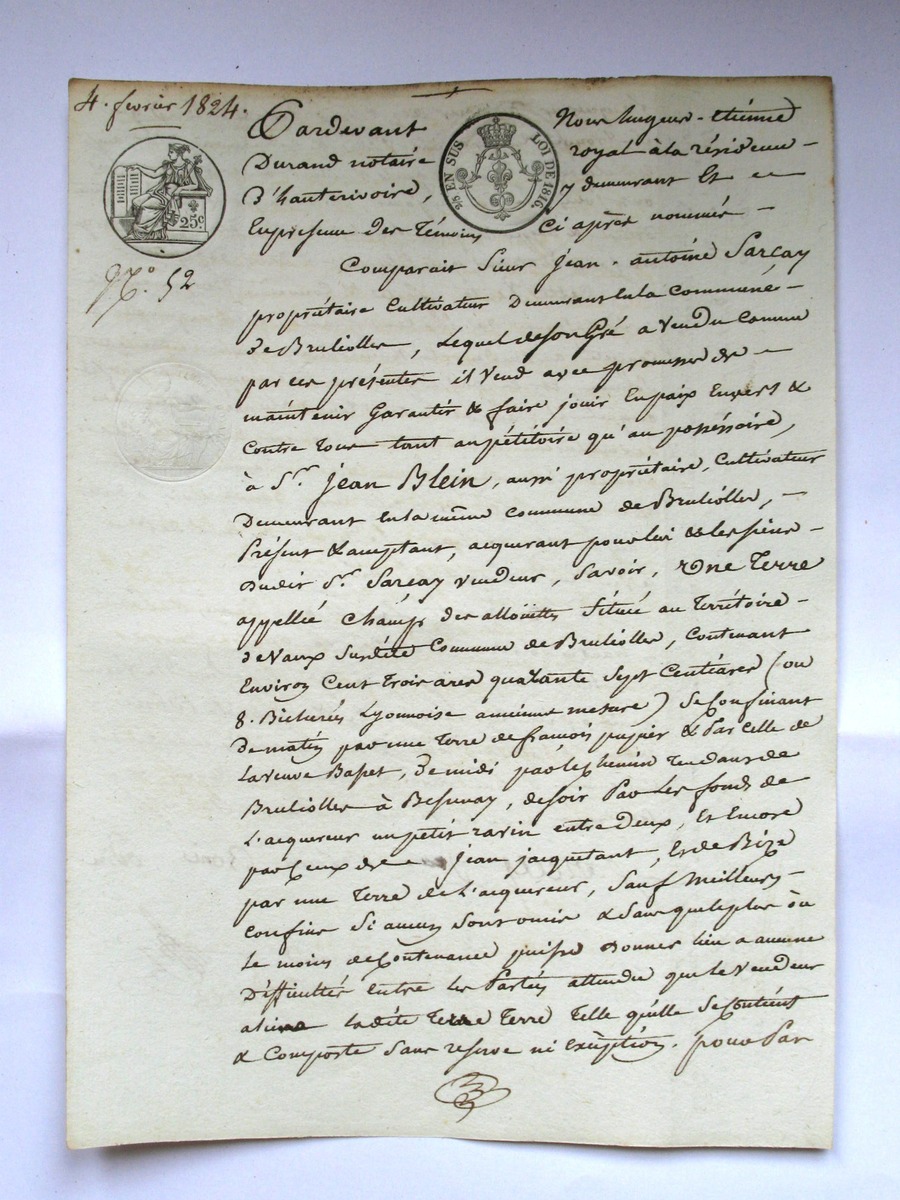 4. fevrier 1824.
Pardevant Nous hugues-etienne
Durand notaire royal à la résidence
d'hauterivoire, y demeurant Et
Enpresence des Témoins Ci après nommés
25 EN SUS LOI DE 1816.
25c
N.o 52
Comparait Sieur Jean-antoine Sarcay
propriétaire Cultivateur Demeurant En la Commune
de Bruliolles, Lequel de son Gré a Vendu Comme
par ces présentes il Vend avec promesse de
maintenir Garantir & faire jouir En paix Envers &
Contre Tous tant au pétitoire qu'au possessoire,
à Sr. Jean Blein, aussi propriétaire, Cultivateur
Demeurant En la même Commune de Bruliolles,
Présent & acceptant, acquerant pour lui & les siens
Dudit Sr. Sarcay Vendeur, Savoir, Une Terre
appellée Champ des allouettes Située au Territoire
de Vaux Susdite Commune de Bruliolles, Contenant
Environ Cent Trois ares quarante Sept Centiares (ou
8. Bicherées Lyonnoise ancienne mesure) Se Confinant
De matin par une Terre de françois papier & Par Celle de
La veuve Basset, De midi par le Chemin Tendant de
Brulliolles à Bessenay, de soir Par Les fonds de
L'acquereur un petit ravin entre Deux, Et Encore
par Ceux de Jean jacquetant, Et de Bize
par une Terre de L'acquereur, Sauf Meilleurs
Confins Si aucuns Sont omis & Sans que le plus ou
Le moins de Contenance puisse Donner lieu a aucune
Difficultés entre Les Parties attendu que le Vendeur
aliene Ladite Terre Terre Telle qu'elle Se Contient
& Comporte Sans reserve ni Exception. pour Par